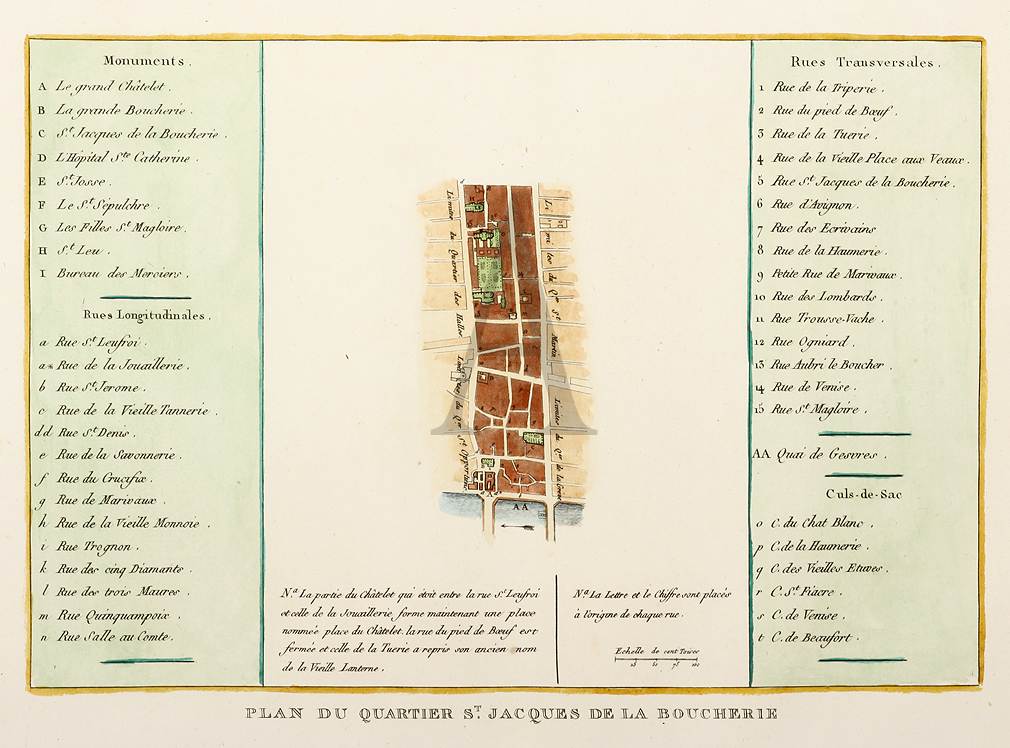 Monuments.
A Le grand Châtelet.
B La grande Boucherie.
C St. Jacques de la Boucherie.
D L'Hôpital Ste Catherine.
E St. Josse.
F Le St. Sépulchre.
G Les Filles St. Magloire.
H St. Leu.
I Bureau des Merciers.
Rues Longitudinales.
a Rue St. Leufroi.
a* Rue de la Jouaillerie.
b Rue St. Jerome.
c Rue de la Vieille Tannerie.
dd Rue St. Denis.
e Rue de la Savonnerie.
f Rue du Crucifix.
g Rue de Marivaux.
h Rue de la Vieille Monnoie.
i Rue Trognon.
k Rue des cinq Diamants.
l Rue des trois Maures.
m Rue Quinquampoix.
n Rue Salle au Comte.
Limites du Quartier des Halles
Limites du Qer St. Opportune
Limites du Qer St. Martin
Limites du Qer de la Greve
AA
Na La partie du Châtelet qui étoit entre la rue St. Leufroi
et celle de la Jouaillerie, forme maintenant une place
nommée place du Châtelet. la rue du pied de Bœuf est
fermée et celle de la Tuerie a repris son ancien nom
de la Vieille Lanterne.
Na La Lettre et le Chiffre sont placés
à l'origine de chaque rue.
Echelle de cent Toises
25 50 75 100
Rues Transversales.
1 Rue de la Triperie.
2 Rue du pied de Bœuf.
3 Rue de la Tuerie.
4 Rue de la Vieille Place aux Veaux.
5 Rue St. Jacques de la Boucherie.
6 Rue d'Avignon.
7 Rue des Ecrivains
8 Rue de la Haumerie.
9 Petite Rue de Marivaux.
10 Rue des Lombards.
11 Rue Trousse-Vache.
12 Rue Ogniard.
13 Rue Aubri le Boucher.
14 Rue de Venise.
15 Rue St. Magloire.
AA Quai de Gesvres.
Culs-de-Sac
o C. du Chat Blanc.
p C. de la Haumerie.
q C. des Vieilles Etuves.
r C. St. Fiacre.
s C. de Venise.
t C. de Beaufort.
PLAN DU QUARTIER ST. JACQUES DE LA BOUCHERIE